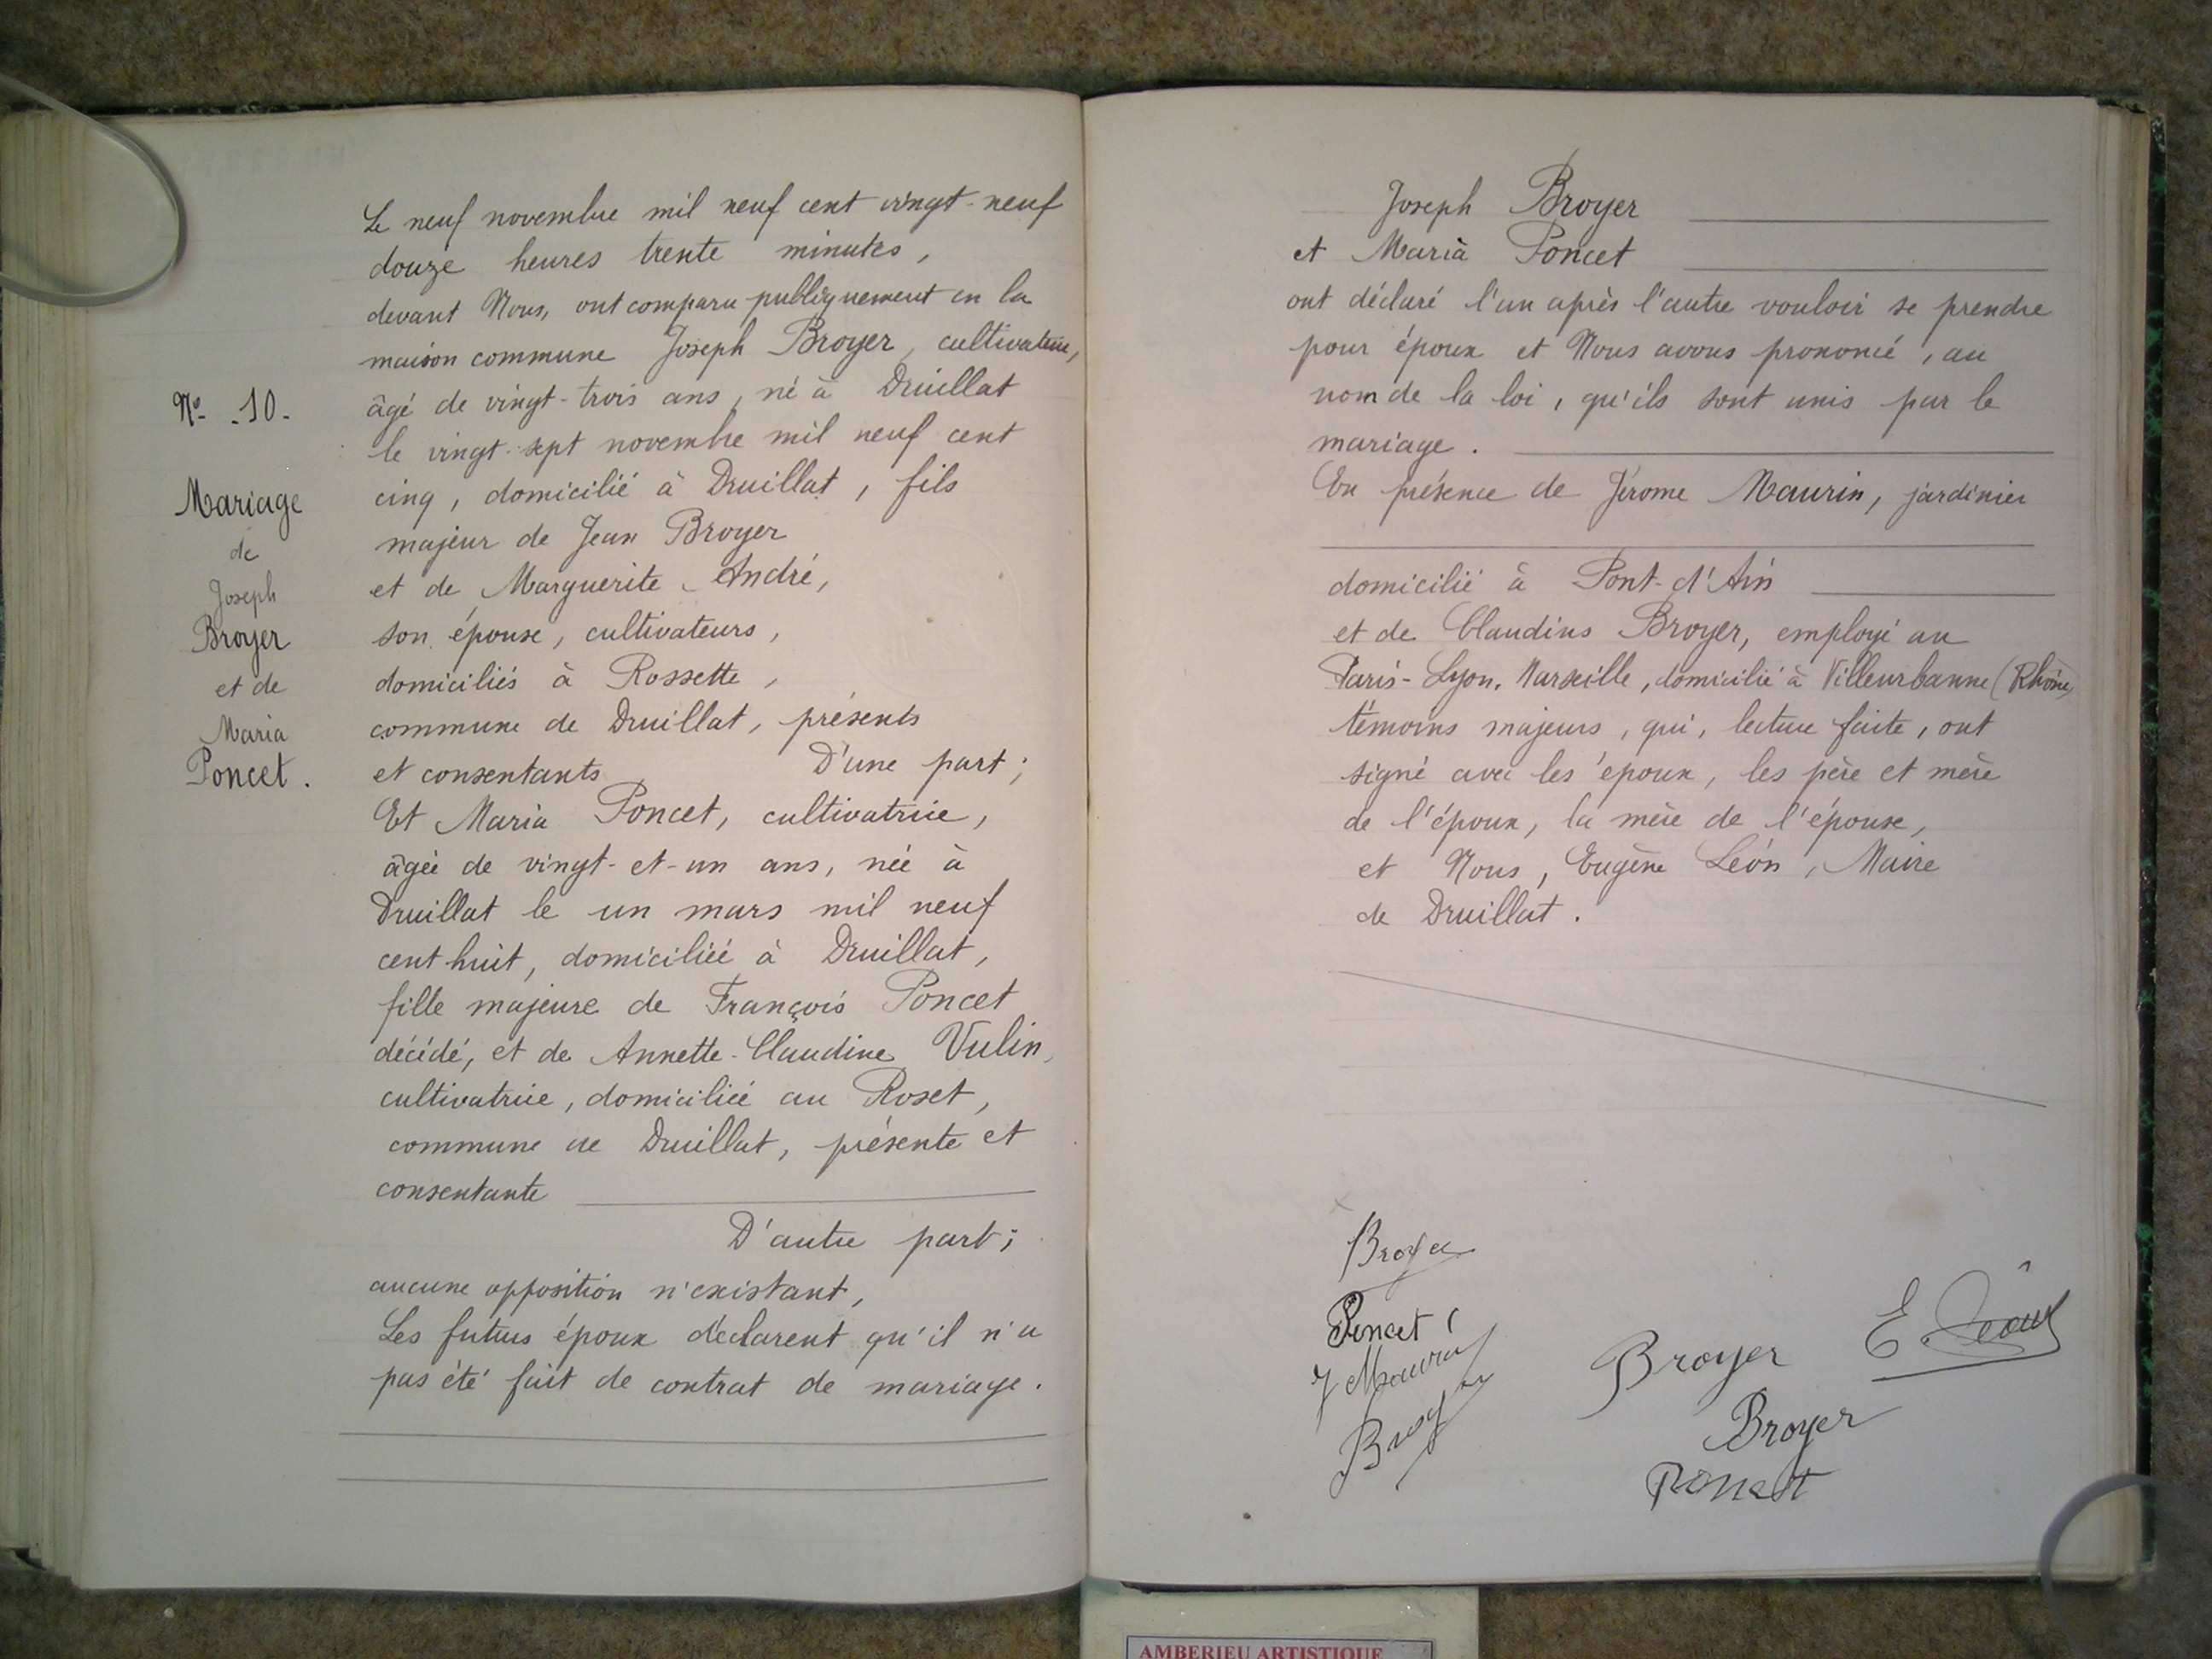 Nº 10.
Mariage
de
Joseph
Broyer
et de
Maria
Poncet.
Le neuf novembre mil neuf cent vingt-neuf
douze heures trente minutes,
devant Nous, ont comparu publiquement en la
maison commune Joseph Broyer, cultivateur,
âgé de vingt-trois ans, né à Druillat
le vingt-sept novembre mil neuf cent
cinq, domicilié à Druillat, fils
majeur de Jean Broyer
et de Marguerite André,
son épouse, cultivateurs,
domiciliés à Rossette,
commune de Druillat, présents
et consentants D'une part;
Et Maria Poncet, cultivatrice,
âgée de vingt-et-un ans, née à
Druillat le un mars mil neuf
cent huit, domiciliée à Druillat,
fille majeure de François Poncet
décédé, et de Annette-Claudine Vulin,
cultivatrice, domiciliée au Roset,
commune de Druillat, présente et
consentante
D'autre part;
aucune opposition n'existant,
Les futurs époux déclarent qu'il n'a
pas été fait de contrat de mariage.
Joseph Broyer
et Maria Poncet
ont déclaré l'un après l'autre vouloir se prendre
pour époux et Nous avons prononcé, au
nom de la loi, qu'ils sont unis par le
mariage.
En présence de Jérome Maurin, jardinier
domicilié à Pont-d'Ain
et de Claudius Broyer, employé au
Paris-Lyon-Marseille, domicilié à Villeurbanne (Rhône)
témoins majeurs, qui, lecture faite, ont
signé avec les époux, les père et mère
de l'époux, la mère de l'épouse,
et Nous, Eugène Léon, Maire
de Druillat.
Broyer
Poncet
J Maurin
Broyer
E. Léon
Broyer
Broyer
Poncet
AMBERIEU ARTISTIQUE